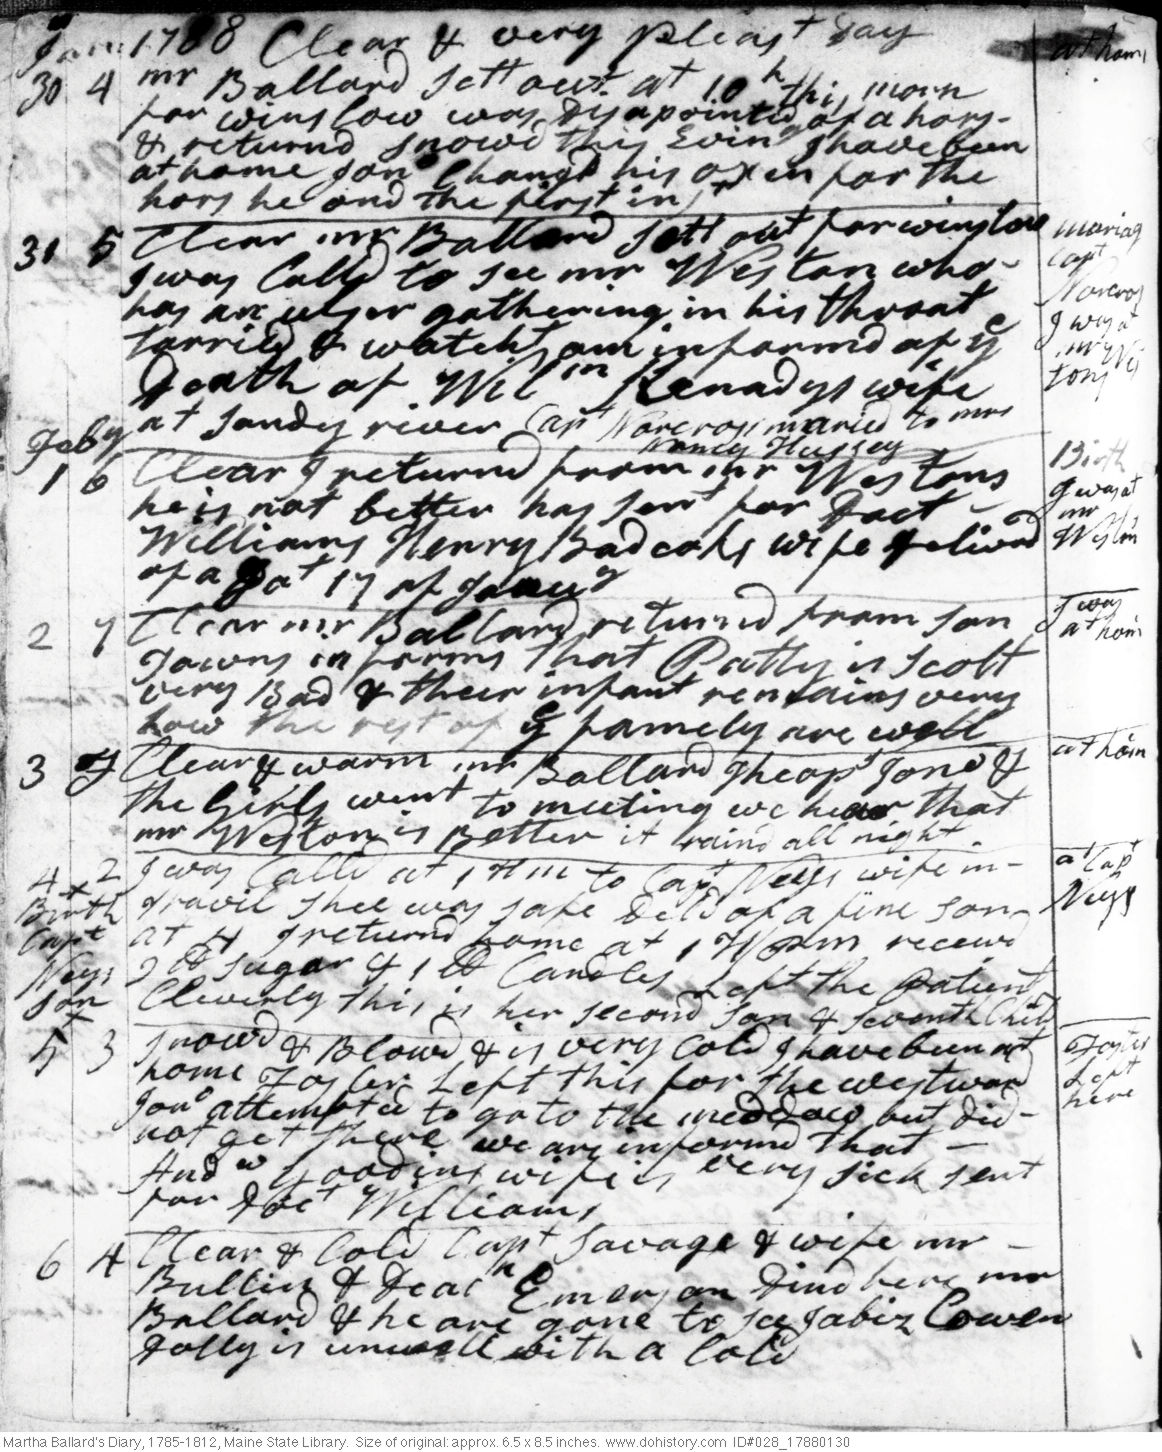 Jan 1788 Clear & very pleast Day at home
30 4 mr Ballard Sett out at 10 h this morn
for winslow was disapointed of a hors
& returnd snowd this Eving I have been
at home Jonº Changd his oxen for the
hors he ond the first inst
31 5 Clear mr Ballard Sett out for winslow mariag
I was Calld to see mr Weston who Capt
has an ulser gathering in his throat Norcros
tarried & watcht, am informd of ye I was at
Death of Wilm Kenadys wife mr Wes
at Sandy river Capt Norcross maried to mrs tons
Nancy Hussey
Feby
1 6 Clear I returnd from mr Westons Birth
he is not better has sent for Doct I was at
Williams Henry Badcoks wife Delivrd mr
of a D at 17 of Janry Weston
2 7 Clear mr Ballard returnd from son I was
Towns informs that Patty is scolt at hom
very Bad & their infant remains very
how the rest of ye famely are well
3 g Clear & warm mr Ballard Jonº & at hom
the Girls went to meeting we hear that
mr Weston is Better it raind all night
4 2 I was Calld at 1 h m to Capt Neys wife in at Capt
Birth travil shee was safe Deld of a fine son Neys
Capt at 4 I returnd home at 1 h pm receivd
Neys 2 lb sugar & 1 lb Candles Left the Patient
son Cleverly this is her second son & seventh Child
X
5 3 snowd & Blowd & is very Cold I have been at Foster
home Foster Left this for the westward Left
Jonº attempted to go to the meddow but did here
not get there we are informd that
Andw Goodins wife is very sick sent
for Doct Williams
6 4 Clear & Cold Capt Savage & wife mr
Bullin & Deacn Emerson Dind here mr
Ballard & he are gone to see Jabiz Cowen
Dolly is unwell with a Cold
Martha Ballard's Diary, 1785-1812, Maine State Library. Size of original: approx. 6.5 x 8.5 inches. www.dohistory.com ID#028_17880130